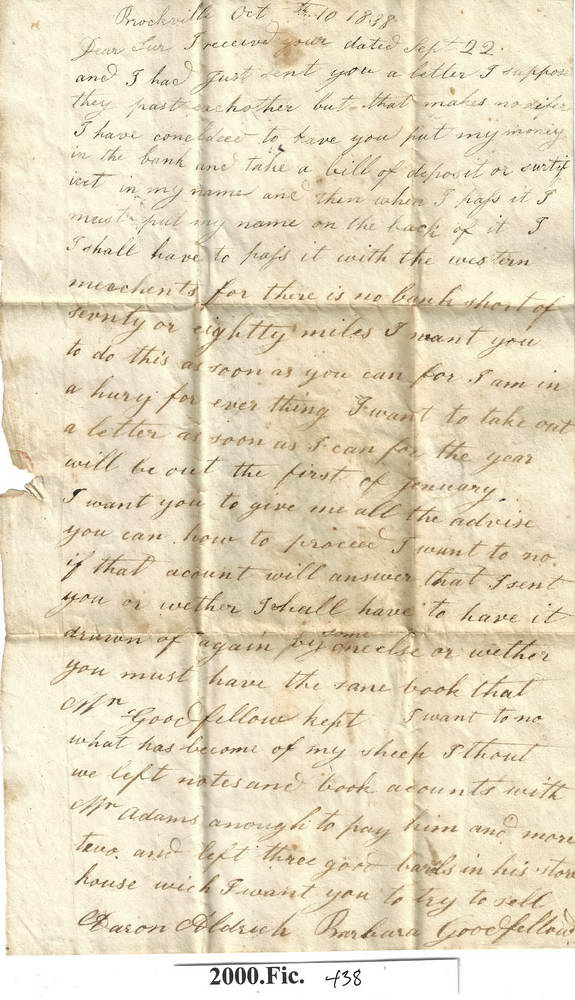 Brockville Oct th 10 1838
Dear Sur I received your dated Sept 22
and I had Just sent you a letter I suppose
they past eachother but that makes no difer
I have concldeed to have you put my money
in the bank and take a bill of deposit or surtif
icet in my name and then when I pass it I
must put my name on the back of it I
I shall have to pass it with the western
merchents for there is no bank short of
sevnty or eightty miles I want you
to do this as soon as you can for I am in
a hury for ever thing I want to take out
a letter as soon as I can for the year
will be out the first of Jenuary
I want you to give me all the advise
you can how to proceed I want to no
if that acount will answer that I sent
you or wether I shall have to have it
drawn of again by some one else or wether
you must have the sane book that
Mr Goodfellow kept I want to no
what has become of my sheep I thout
we left notes and book acounts with
Mr Adams anough to pay him and more
two and left three good barels in his store
house wich I want you to try to sell
Aaron Aldrich Barbara Goodfellow
2000.Fic. 438